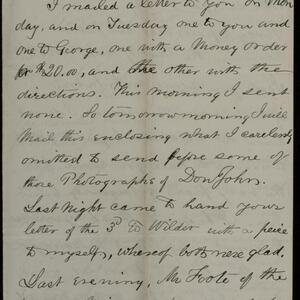 I mailed a letter to you on Mon
day, and on Tuesday one to you and
one to George, one with a Money Order
for $20.00, and the other with the
directions. This morning I sent
none. So tomorrow morning I will
Mail this enclosing what I carelessly
omitted to send before some of
those Photographs of Don John.
Last Night came to hand your
letter of the 3d to Wilder with a peice
to myself, whereof both were glad.
Last evening, Mr Foote of the